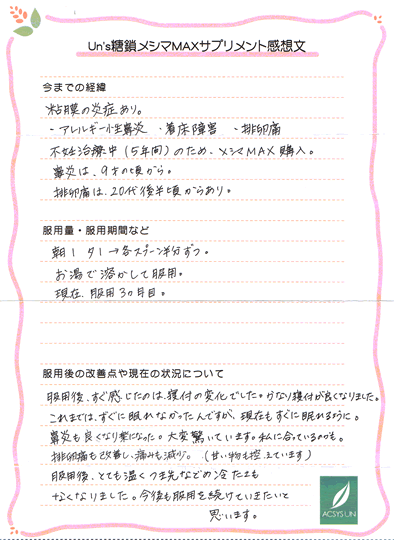 Un's糖鎖メシマMAXサプリメント感想文
今までの経緯
粘膜の炎症あり。
・アレルギー性鼻炎 ・着床障害 ・排卵痛
不妊治療中(5年間)のため、メシマMAX購入。
鼻炎は、9才の頃から。
排卵痛は、20代後半頃からあり。
服用量・服用期間など
朝1 夕1→各スプーン半分ずつ。
お湯で溶かして服用。
現在、服用3ヵ月目。
服用後の改善点や現在の状況について
服用後、すぐ感じたのは、寝付の変化でした。かなり寝付が良くなりました。
これまでは、すぐに眠れなかったんですが、現在もすぐに眠れるように。
鼻炎も良くなり楽になった。大変驚いています。私に合っているのかも。
排卵痛も改善し、痛みも減少。(甘い物も控えています)
服用後、とても温く つま先などの冷たさも
なくなりました。今後も服用を続けていきたいと
思います。
ACSYS UN